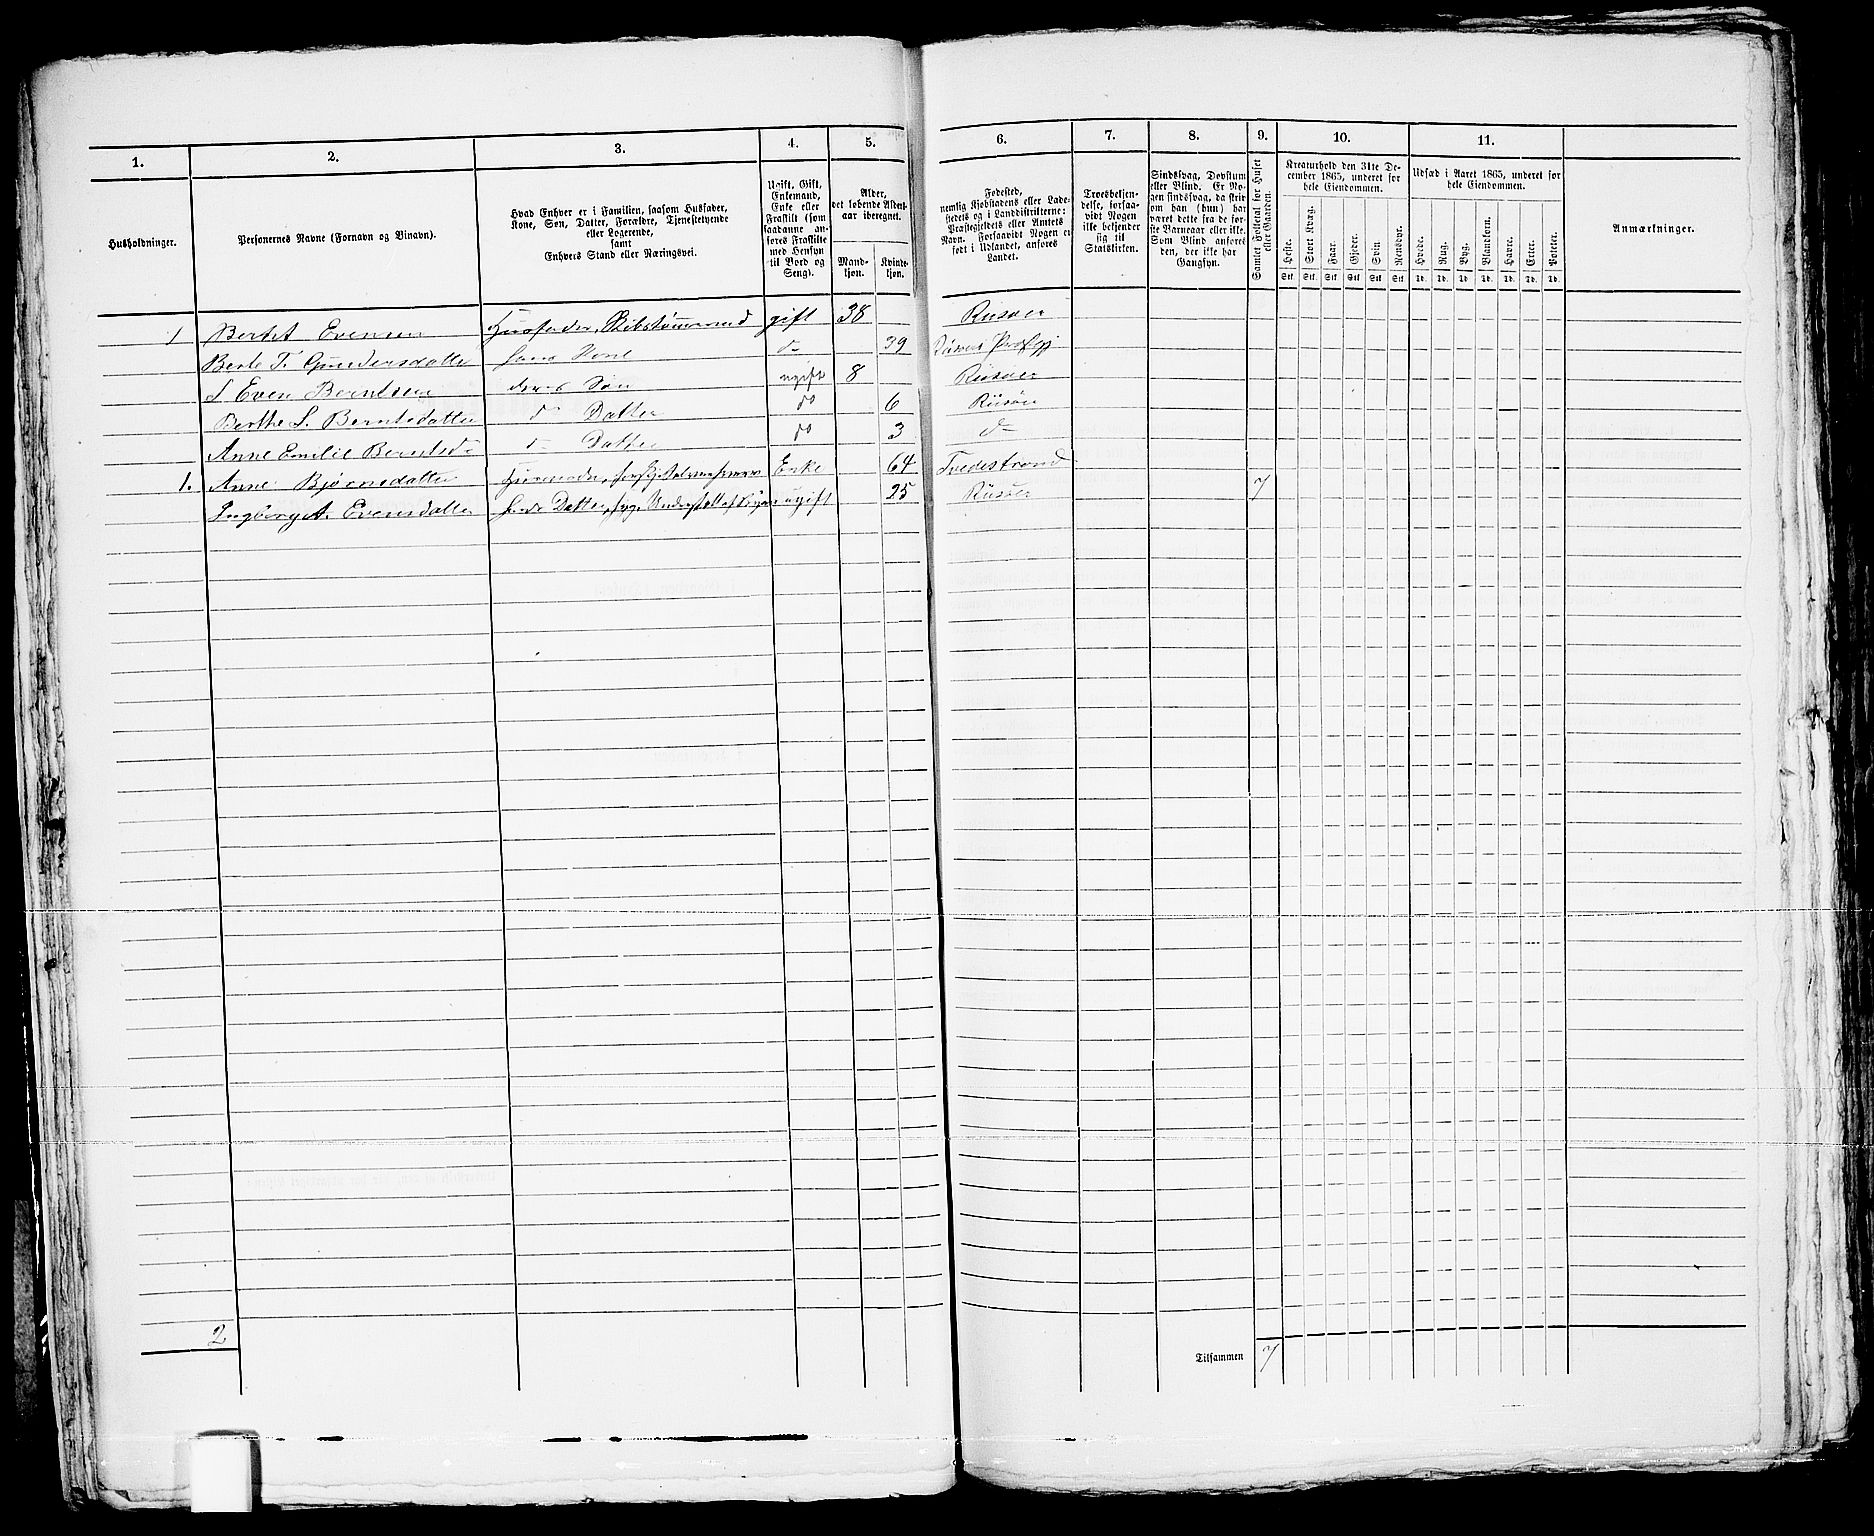 1. 2. 3. 4. 5. 6. 7. 8. 9. 10. 11.
Husholdninger.
Personernes Navne (Fornavn og Tilnavn).
Hvad Enhver er i Familien, saasom Husfader,
Kone, Søn, Datter, Forældre, Tjenestetyende
eller Logerende,
samt
Enhvers Stand eller Næringsvei.
Ugift, Gift,
Enkemand,
Enke eller
Fraskilt (som
saadanne an-
føres Fraskilte
med Hensyn
til Bord og
Seng).
Alder,
det løbende Alders-
aar iberegnet.
Mand-
kjøn.
Kvinde-
kjøn.
Fødested,
nemlig Kjøbstadens eller Lade-
stedets og i Landdistrikterne:
Præstegjeldets eller Anneks
Navn. Forsaavidt Nogen er
født i Udlandet, anføres
Landet.
Troesbekjen-
delse, forsaa-
vidt Nogen
ikke bekjender
sig til
Statskirken.
Sindssvag, Døvstum
eller Blind. Er No-
gen sindssvag, da skri-
ves om han (hun) har
været dette fra de før-
ste Barneaar eller ikke.
Som Blind anføres
den, der ikke har
Gangsyn.
Samlet Folketal for Huset
eller Gaarden.
Kreaturhold den 31te De-
cember 1865, underet for
hele Eiendommen.
Heste. Stort Kvæg. Faar. Gjeder. Svin Rensdyr.
Stk. Stk. Stk. Stk. Stk. Stk.
Udsæd i Aaret 1865, underet for
hele Eiendommen.
Hvede. Rug. Byg. Blandkorn. Havre. Erter. Poteter.
Td. Td. Td. Td. Td. Td. Td.
Anmærkninger.
1 Berntet Evensen Husfader, Skibstømmermd gift 38 Risøer
Berte T. Gundersdatter hans Kone do 39 Risøers Præstegj
S Even Berntsen deres Søn ugift 8 Risøer
Berthe S. Berntsdatter do Datter do 6 Risøer
Anne Emilie Berntsd do Datter do 3 do
1. Anne Bjørnsdatter Husmoder, Enke 64 Tvedestrand
Ingborg A. Evensdatter hendes Datter, syg, Understøttet af Byen ugift 25 Risøer 7
2
Tilsammen 7